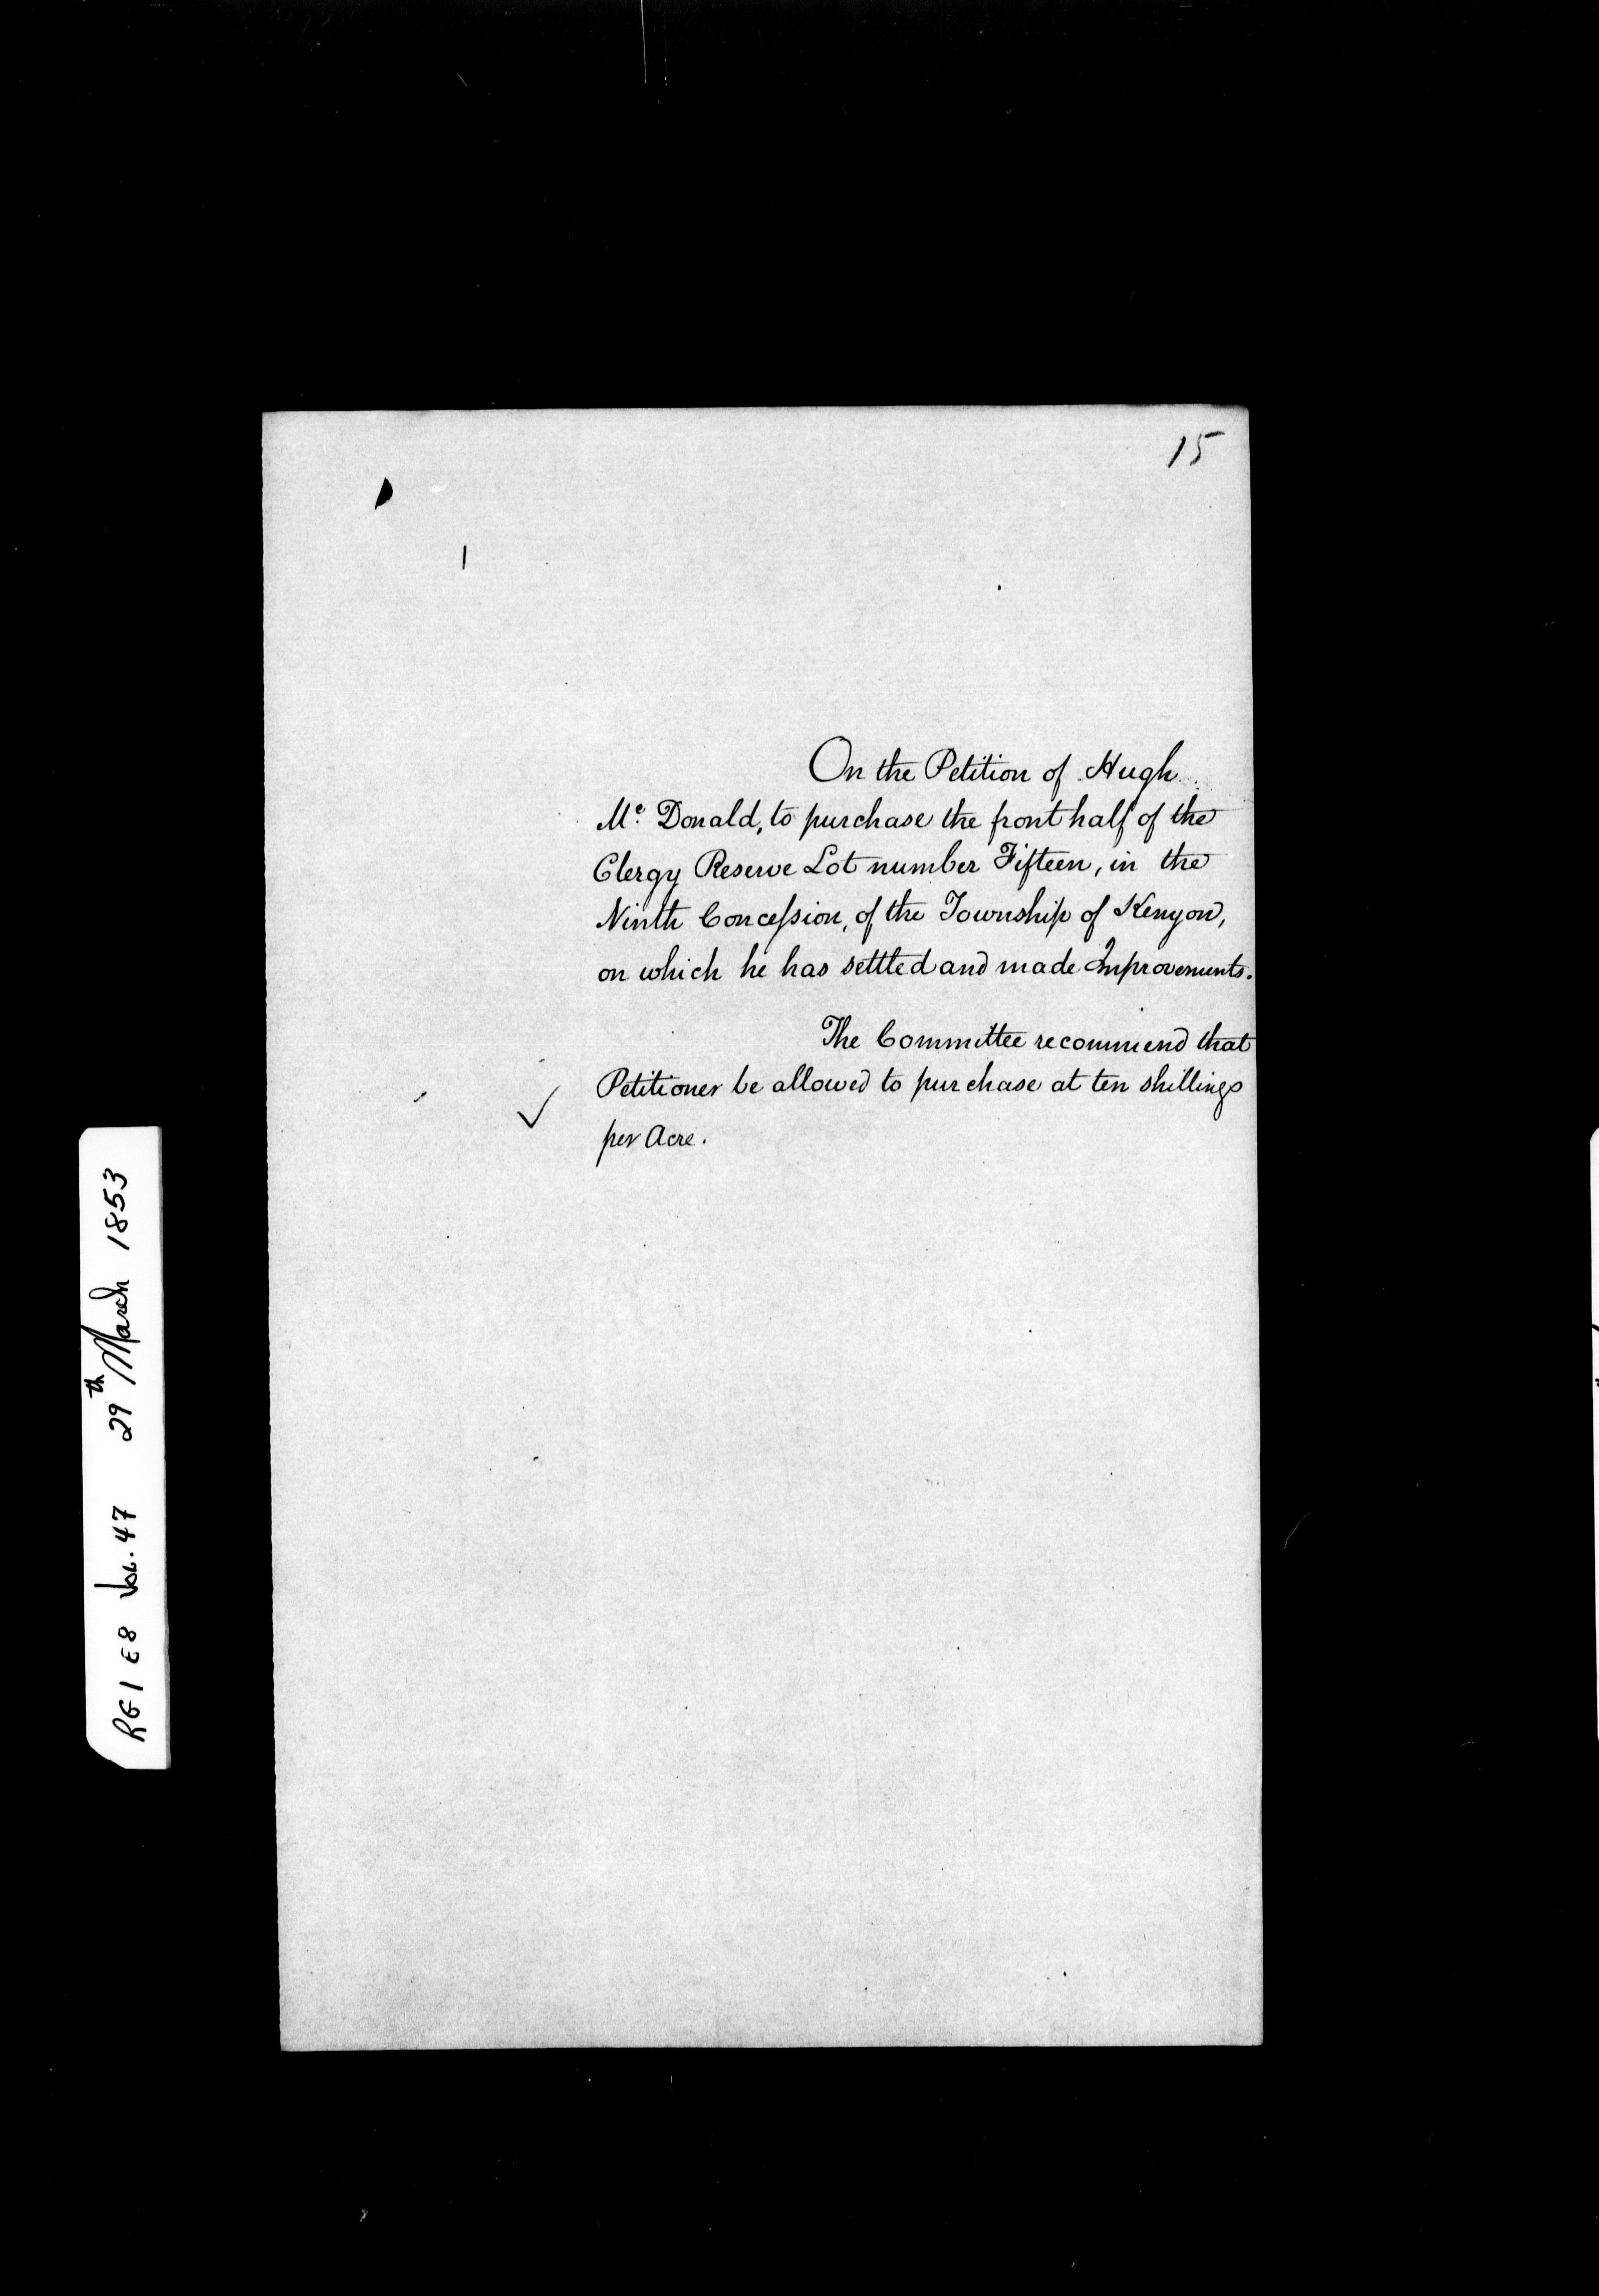 15
On the Petition of Hugh
Mc. Donald, to purchase the front half of the
Clergy Reserve Lot number Fifteen, in the
Ninth Concession, of the Township of Kenyon,
on which he has settled and made Improvements.
The Committee recommend that
Petitioner be allowed to purchase at ten shillings
per Acre.
RG 1 E8 Vol. 47 29th March 1853